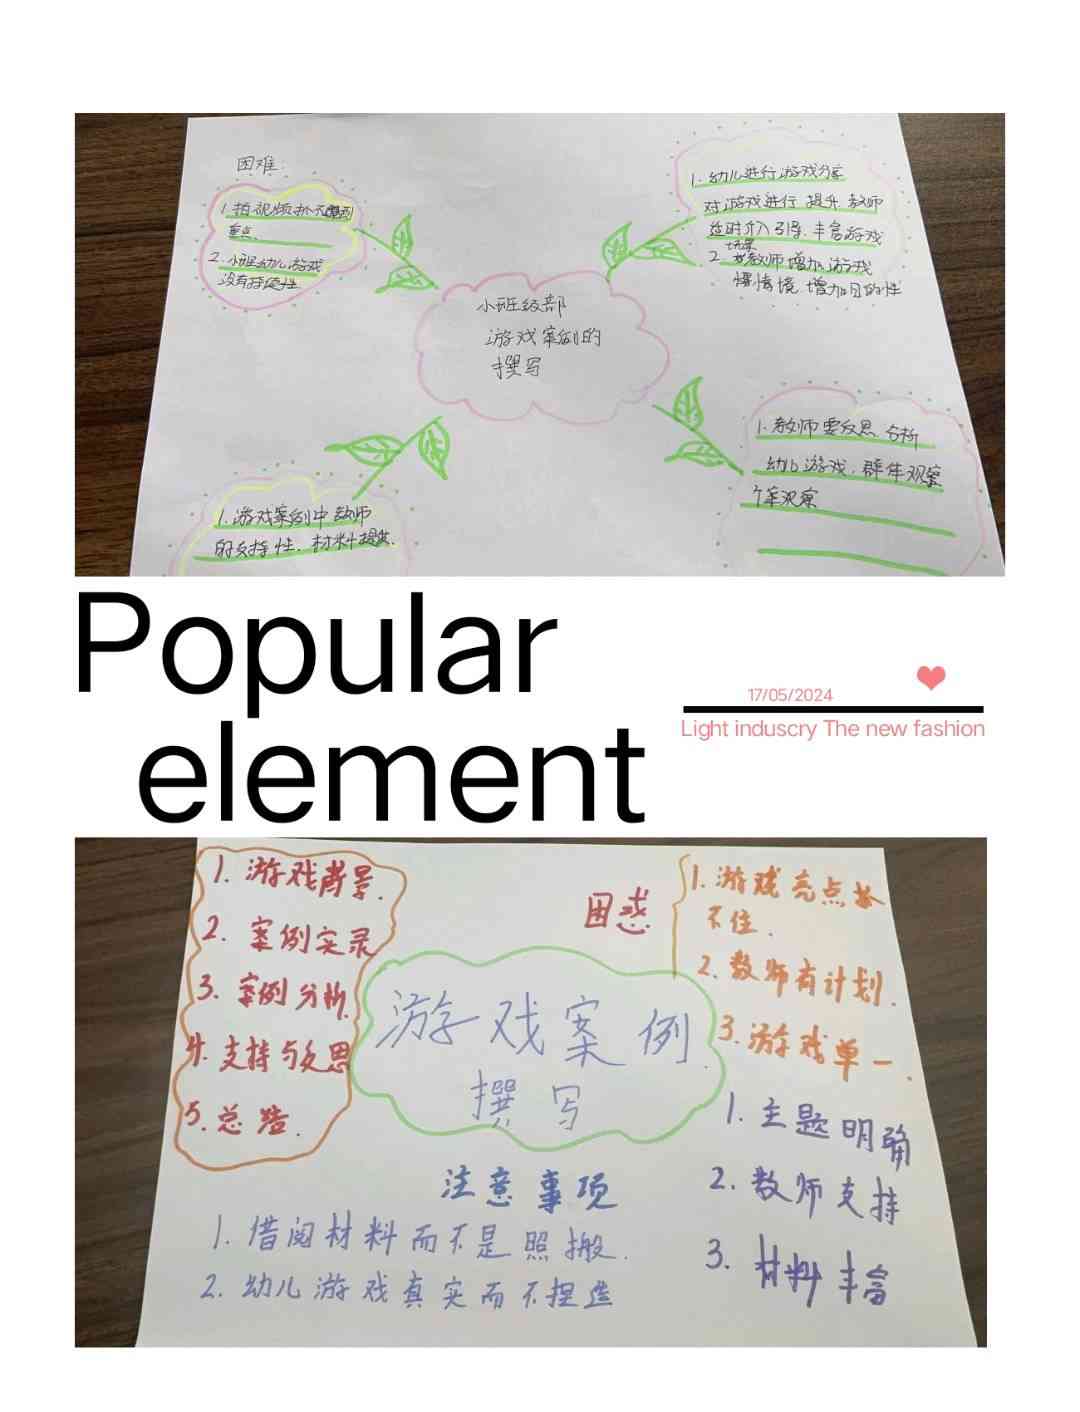 困难:
1.拍视频抓不到
重点.
2.小班幼儿游戏
没有持续性
1.幼儿进行游戏分享
对游戏进行提升.教师
适时介入引导.丰富游戏
场景
2.教师增加游戏
情境.增加目的性
小班级部
游戏案例的
撰写
1.游戏案例中教师
的支持性.材料提供.
1.教师要反思.分析
幼儿游戏.群体观察
个案观察
Popular
element
17/05/2024
Light induscry The new fashion
1.游戏背景.
2.案例实录
3.案例分析.
4.支持与反思
5.总结.
困惑
1.游戏亮点抓
不住.
2.教师有计划.
3.游戏单一.
游戏案例
撰写
1.主题明确
2.教师支持
3.材料丰富
注意事项
1.借阅材料而不是照搬.
2.幼儿游戏真实而不捏造